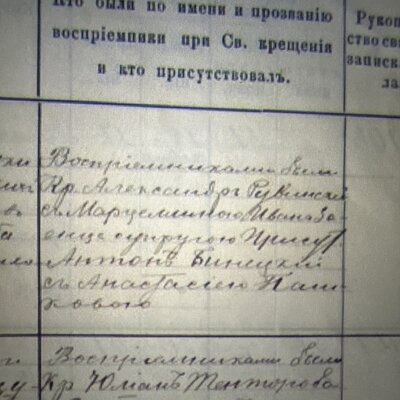 Кто были по имени и прозванію
воспріемники при Св. крещеніи
и кто присутствовалъ.
Рукоп
ство св
запис
Воспріемниками были
Кр Александръ
съ Марцелиною Ивана За-
супругою Присут.
Антонъ Бинецкій
съ Анастасіею Паш
ковою
Воспріемниками были
Кр Юліанъ